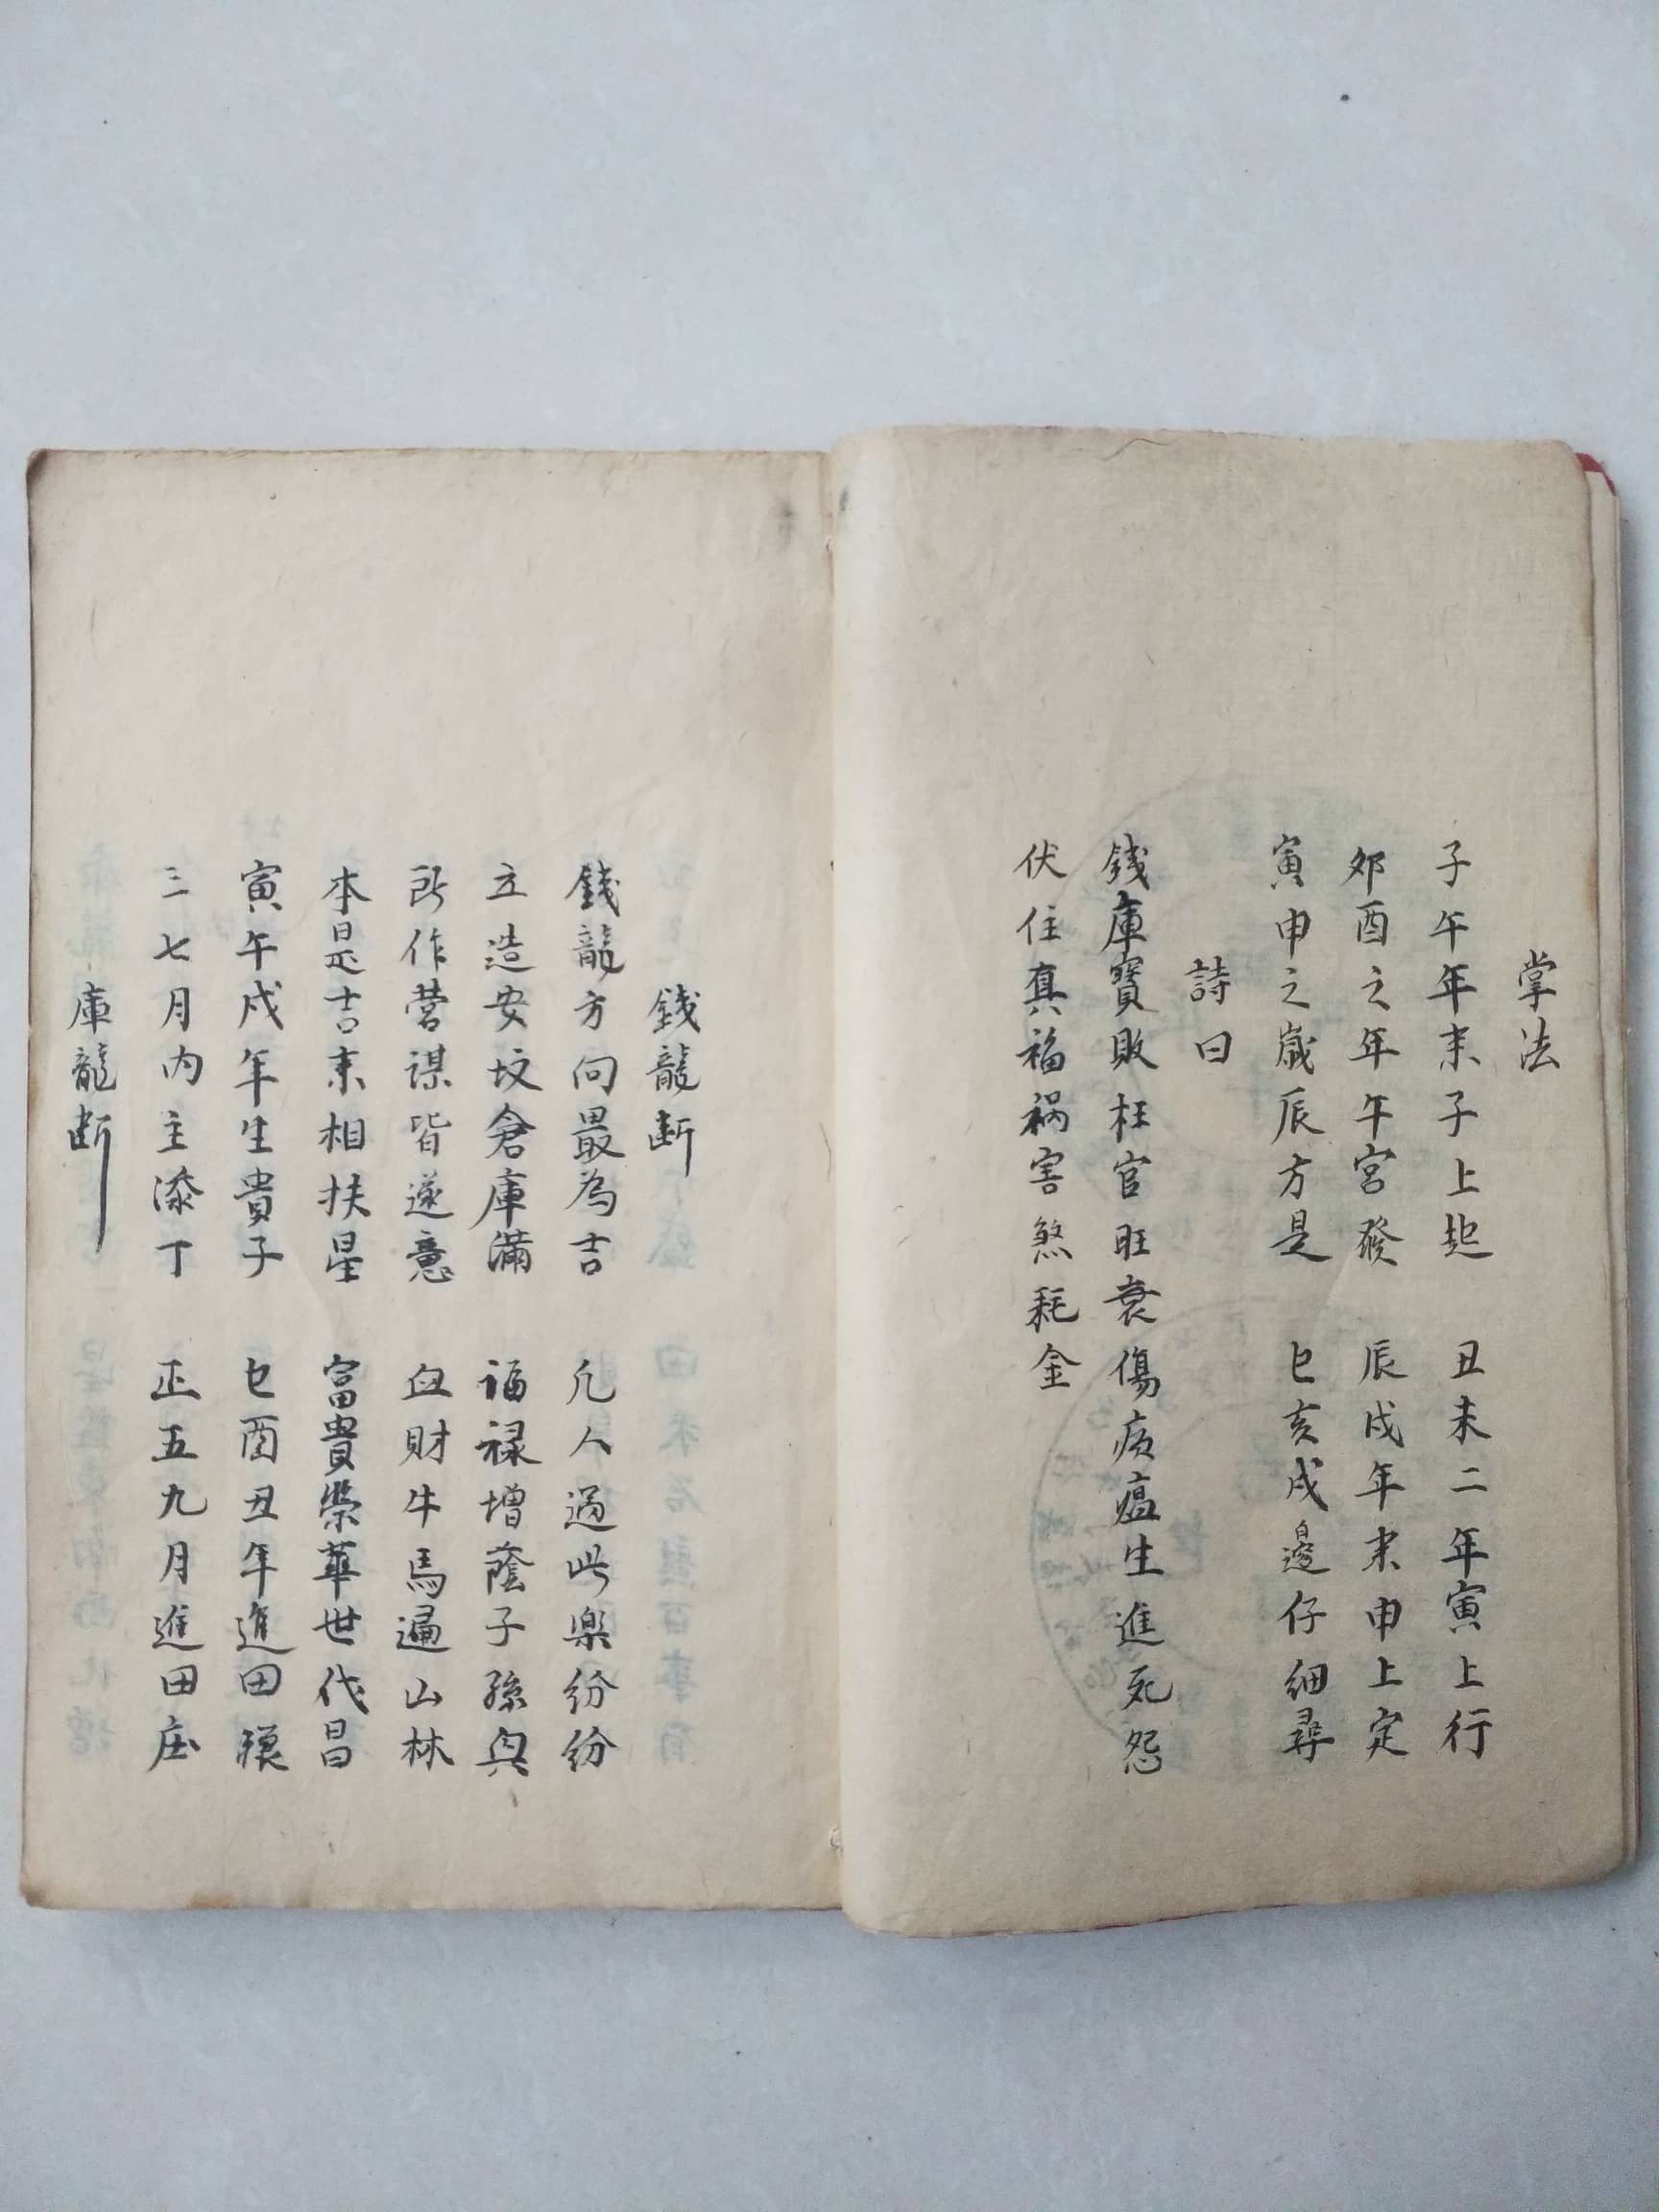 掌法
子午年来子上起 丑未二年寅上行
卯酉之年午宮發 辰戌年来申上定
寅申之歲辰方是 巳亥戌邊仔細尋
詩曰
錢庫寶敗枉官旺衰傷病瘟生進死怨
伏住真福禍害煞耗金
錢龍断
錢龍方向最為吉 凡人遇此樂纷纷
立造安坟倉庫滿 福禄增蔭子孫
所作营谋皆遂意 血財牛馬遍山林
本是吉来相扶星 富貴榮華世代昌
寅午戌年生貴子 巳酉丑年進田
三七月内主添丁 正五九月進田庄
庫龍断